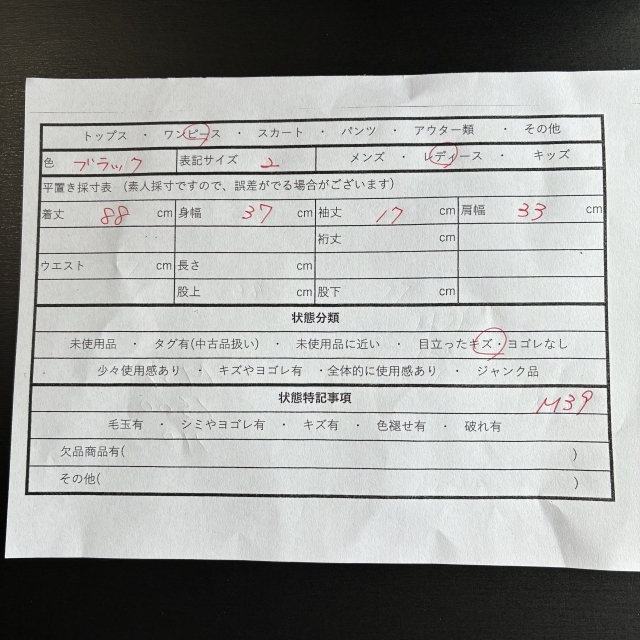 トップス ・ ワンピース ・ スカート ・ パンツ ・ アウター類 ・ その他
色 ブラック 表記サイズ 2 メンズ ・ レディース ・ キッズ
平置き採寸表 (素人採寸ですので、誤差がでる場合がございます)
着丈 88 cm 身幅 37 cm 袖丈 17 cm 肩幅 33 cm
裄丈 cm
ウエスト cm 長さ cm
股上 cm 股下 cm
状態分類
未使用品 ・ タグ有(中古品扱い) ・ 未使用品に近い ・ 目立ったキズ・ヨゴレなし
少々使用感あり ・ キズやヨゴレ有 ・全体的に使用感あり ・ ジャンク品
状態特記事項 M39
毛玉有 ・ シミやヨゴレ有 ・ キズ有 ・ 色褪せ有 ・ 破れ有
欠品商品有( )
その他( )